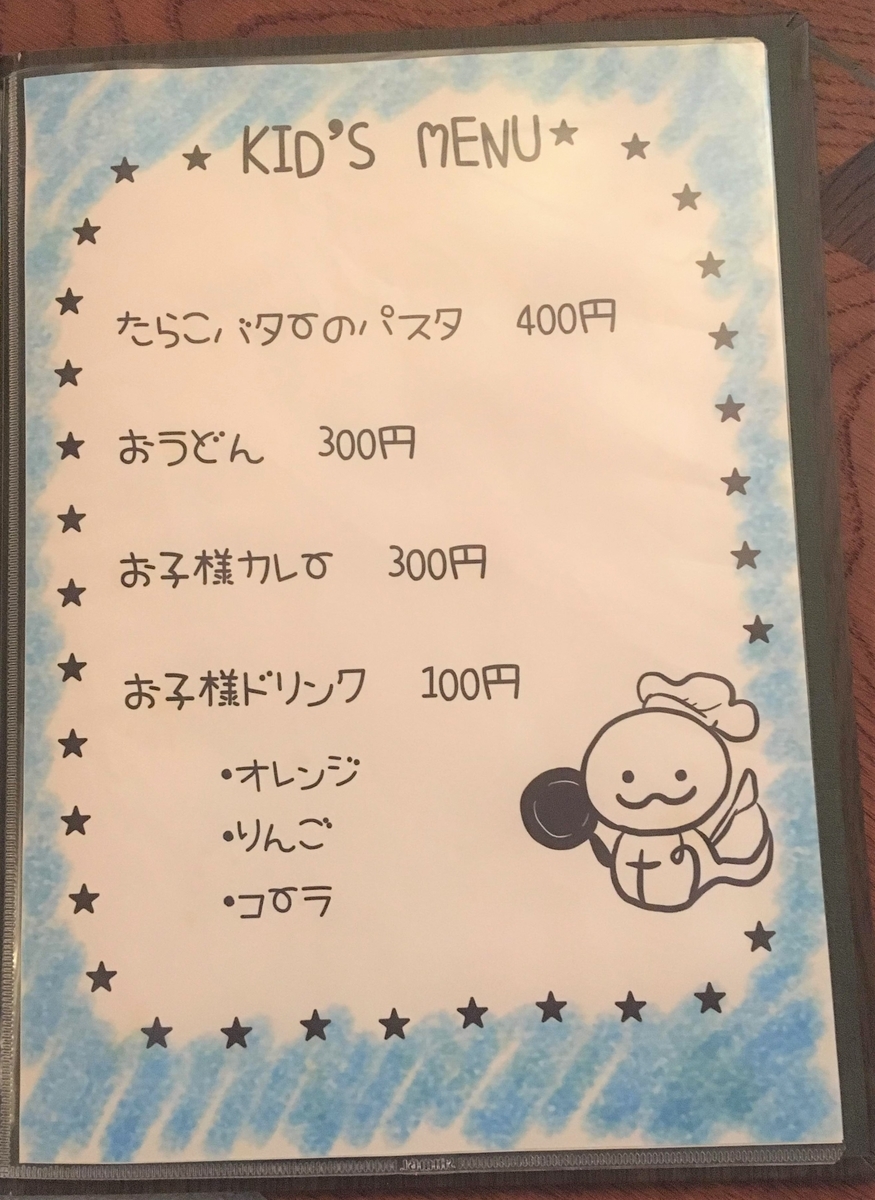 KID'S MENU
たらこバターのパスタ 400円
おうどん 300円
お子様カレー 300円
お子様ドリンク 100円
・オレンジ
・りんご
・コーラ